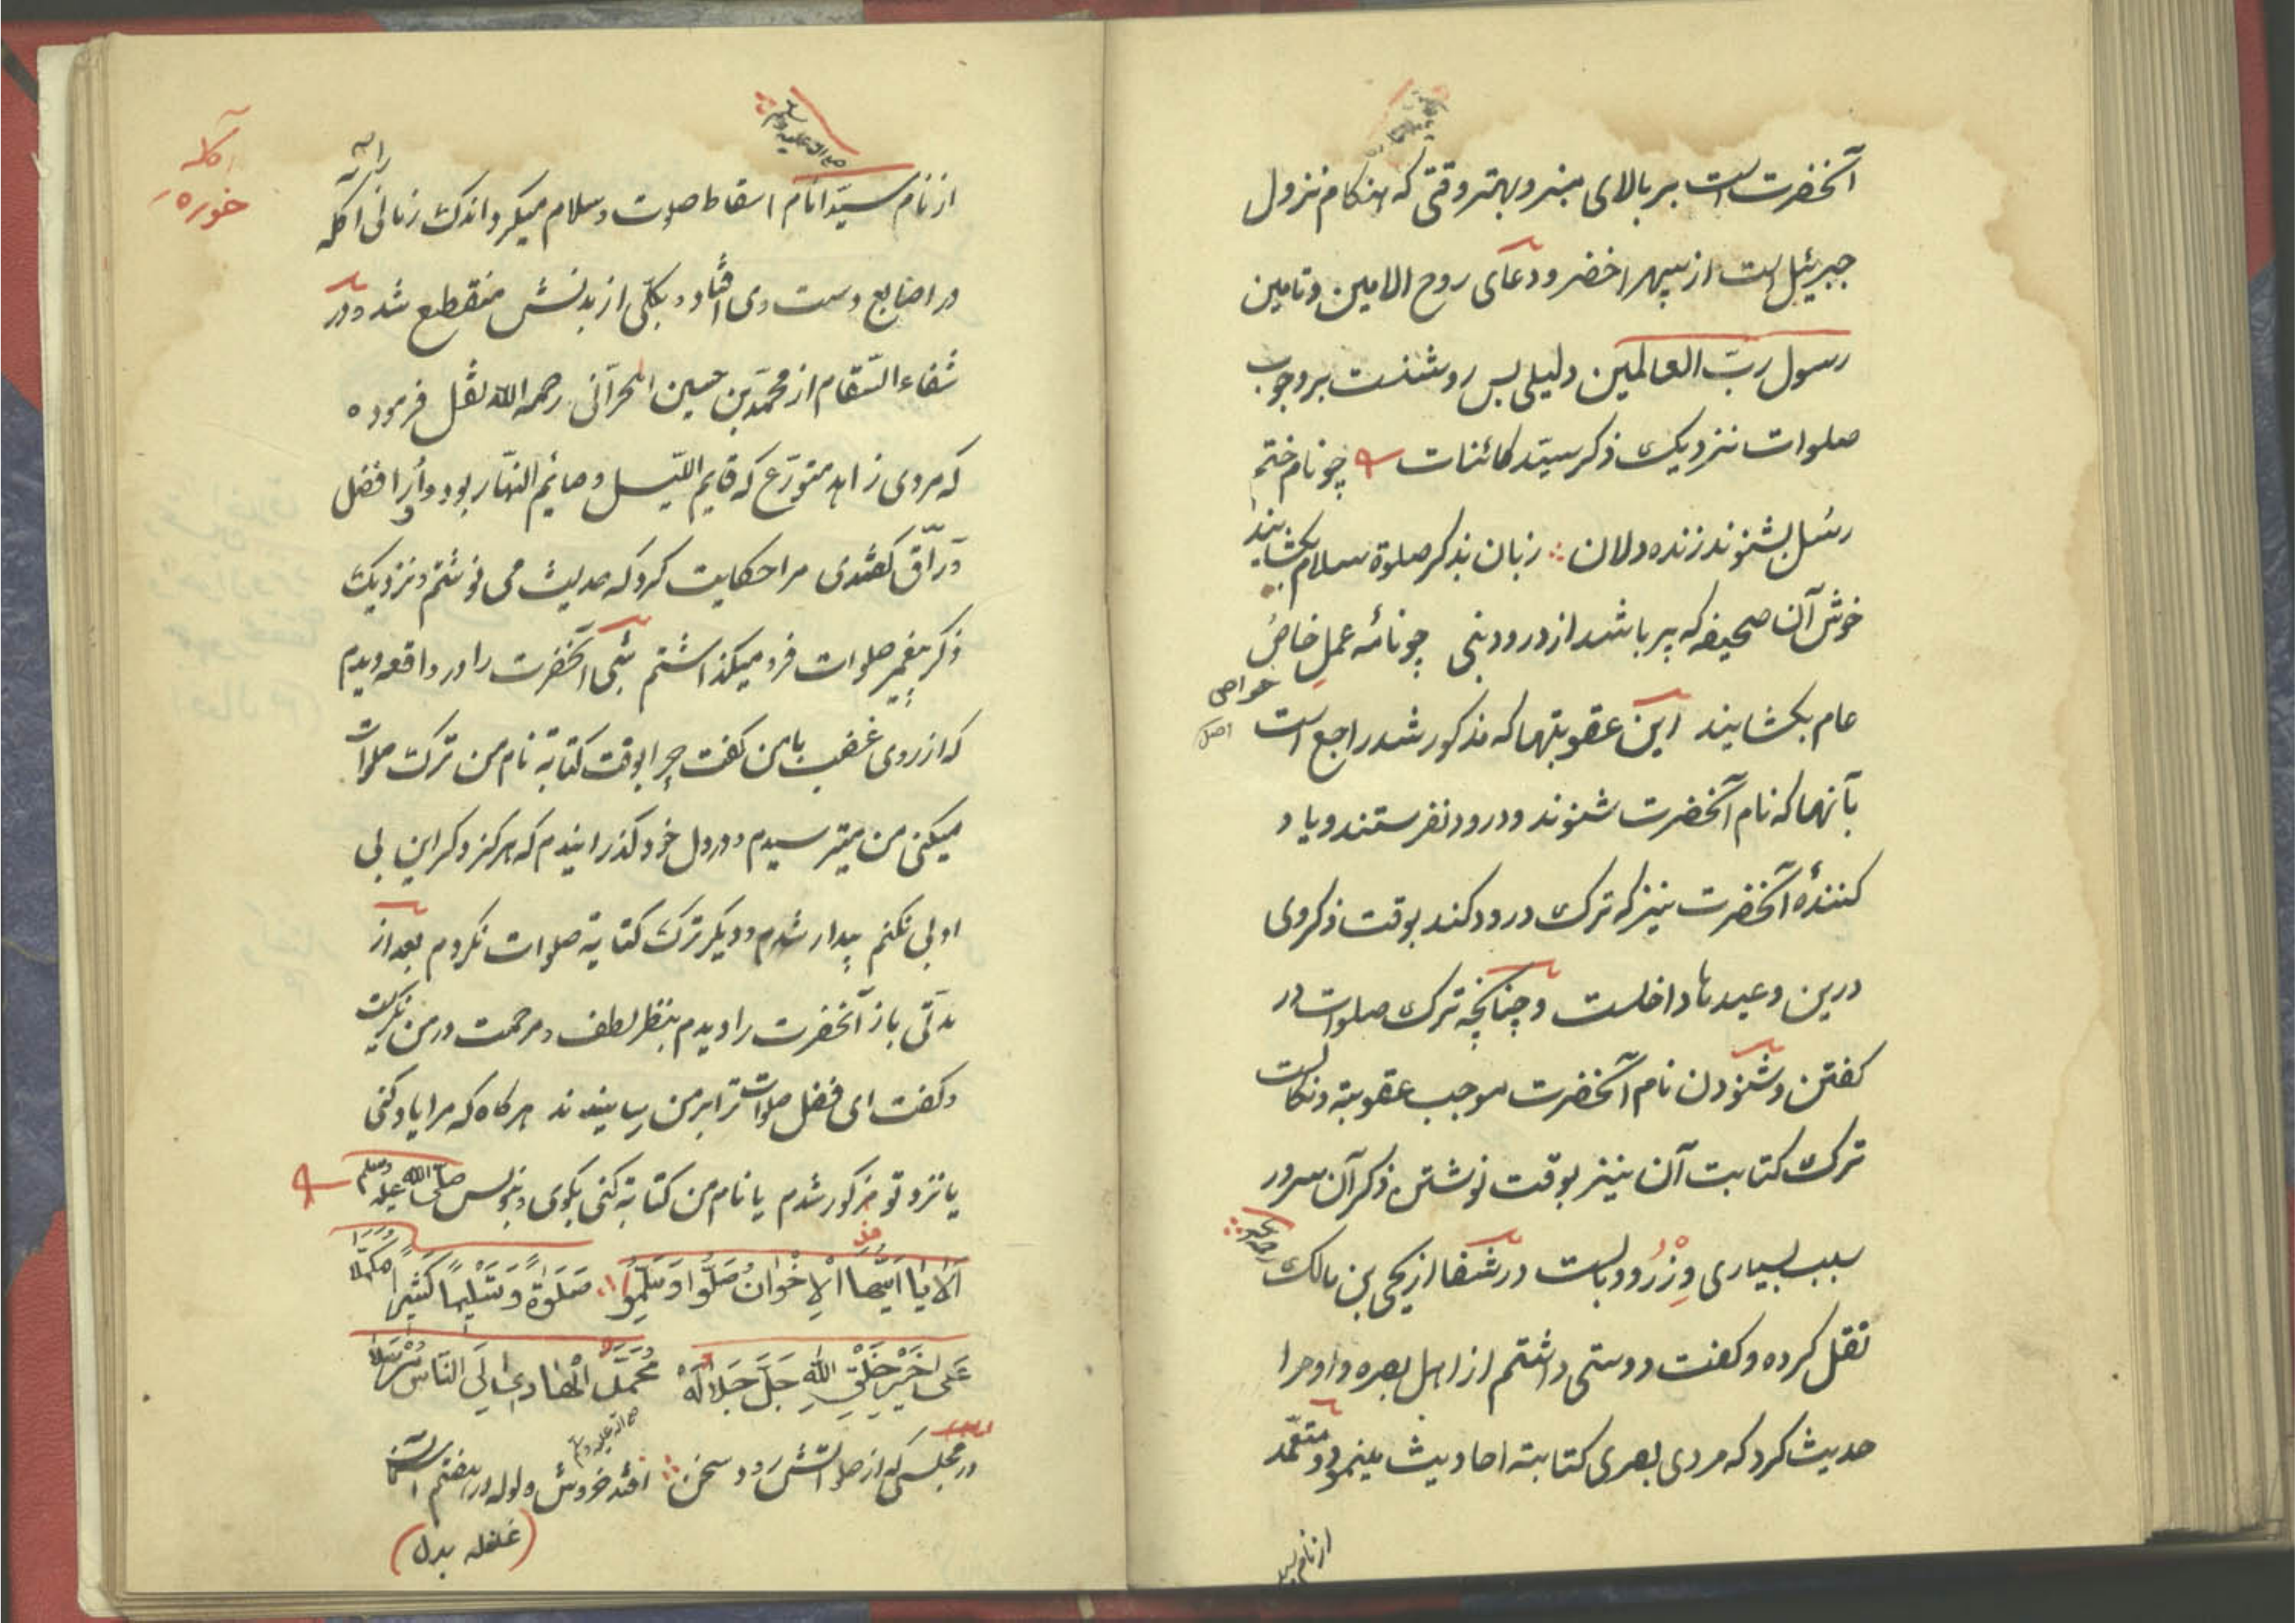 آنخضرت است بر بالای منبر و بهتر وقتی که هنکام نزول
جبرئیل است از سپهر اخضر و دعای روح الامین و تامین
رسول ربّ العالمین دلیلی بس روشنست بر وجوب
صلوات نزدیک ذکر سیّد کائنات چو نام ختم
رسل بشنوند زنده دلان زبان بذکر صلوة سلام بکشایند
خوش آن صحیفه که پر باشد از درود نبی چو نامهٔ عملِ خاص
عام بکشایند این عقوبتها که مذکور شد راجع است
خواص
اصل
بآنها که نام آنخضرت شنوند و درود نفرستند و یاد
کنندهٔ آنخضرت نیز که ترک درود کند بوقت ذکر وی
درین وعیدها داخلست و چنانچه ترک صلوات در
کفتن و شنودن نام آنخضرت موجب عقوبة و نکالست
ترک کتابت آن نیز بوقت نوشتن ذکر آن سرور
سبب بسیاری وِزْرُ و وبالست در شفا از یحیی بن مالک
نقل کرده و کفت دوستی داشتم از اهل بصره و او مرا
حدیث کرد که مردی بصری کتابة احادیث مینمود و متعمّد
از نام سید
صلی الله علیه وسلم
از نام سیّد انام اسقاط صلوت و سلام میکرد اندک زمانی اکله
را
اکله
خوره
در اصابع دست وی افتاد و بکلّی از بدنش منقطع شد و در
شفاء السّقام از محمّد بن حسین الحرّانی رحمه الله نقل فرموده
که مردی زاهد متورّع که قایم اللّیل و صائم النهّار بود و اُو را فضل
ورّاق کفتندی مرا حکایت کرد که حدیث می نوشتم و نزدیک
ذکر پیغمبر صلوات فرو میکذاشتم شبی آنخضرت را در واقعه دیدم
که از روی غضب با من کفت چرا بوقت کتابة نام من ترک صلوات
میکنی من بترسیدم و در دل خود کذرانیدم که هرکز دکر این بی
ادبی نکنم بیدار شدم و دیکر ترک کتابة صلوات نکردم بعد از
مدّتی باز آنخضرت را دیدم بنظر لطف و مرحمت در من نکریست
و کفت ای فضل صلوات ترا بر من رسانیدند هرکاه که مرا یاد کنی
یا نزد تو مذکور شدم یا نام من کتابة کنی بکوی و بنویس صلّی الله علیه وسلم
اَلَا یَا اَیُّهَا الْاِخْوَانُ صَلُّوا وَسَلِّمُوا صَلَوٰةً وَتَسْلِیمًا کَثِیرًا مُکَمَّلًا
عَلَی خَیْرِ خَلْقِ اللّٰهِ جَلَّ جَلَالُهُ مُحَمَّدٍ الْهَادِی اِلَی النَّاسِ مُرْسَلًا
صلی الله علیه وسلم
در مجلسی که از صلواتش رود سخن افتد خروش ولوله در هفتم آسمان
(غلغله بدل)